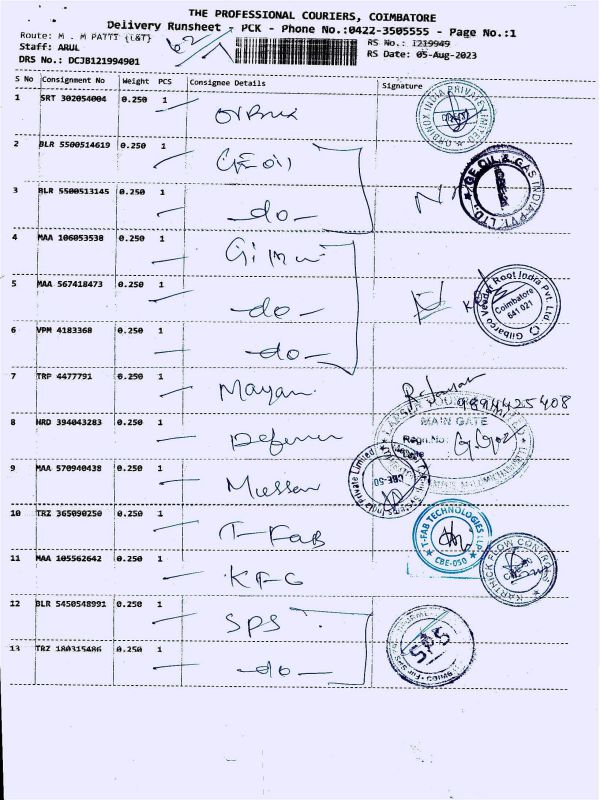 THE PROFESSIONAL COURIERS, COIMBATORE
Delivery Runsheet - PCK - Phone No.:0422-3505555 - Page No.:1
Route: M . M PATTI {L&T}
RS No.: 1219949
Staff: ARUL
RS Date: 05-Aug-2023
DRS No.: DCJB121994901
S No Consignment No Weight PCS Consignee Details Signature
1 SRT 302054004 0.250 1
ORBINOX INDIA PRIVATE LIMITED
2 BLR 5500514619 0.250 1 GE oil
GE OIL & GAS INDIA PVT. LTD.
3 BLR 5500513145 0.250 1 -do-
4 MAA 106053538 0.250 1
5 MAA 567418473 0.250 1 -do-
Gilbarco Veeder Root India Pvt. Ltd
Coimbatore
641 021
6 VPM 4183368 0.250 1 -do-
7 TRP 4477791 0.250 1
9894425408
MAIN GATE
Regn.No:
8 HRD 394043283 0.250 1 Defence
9 MAA 570940438 0.250 1
India Private Limited
CBE-50
10 TRZ 365090250 0.250 1 T-FAB
T-FAB TECHNOLOGIES LLP
CBE-050
11 MAA 105562642 0.250 1 KFC
KARTHICK FLOW CONTROLS
12 BLR 5450548991 0.250 1 SPS
SPS
13 TRZ 180315486 0.250 1 -do-